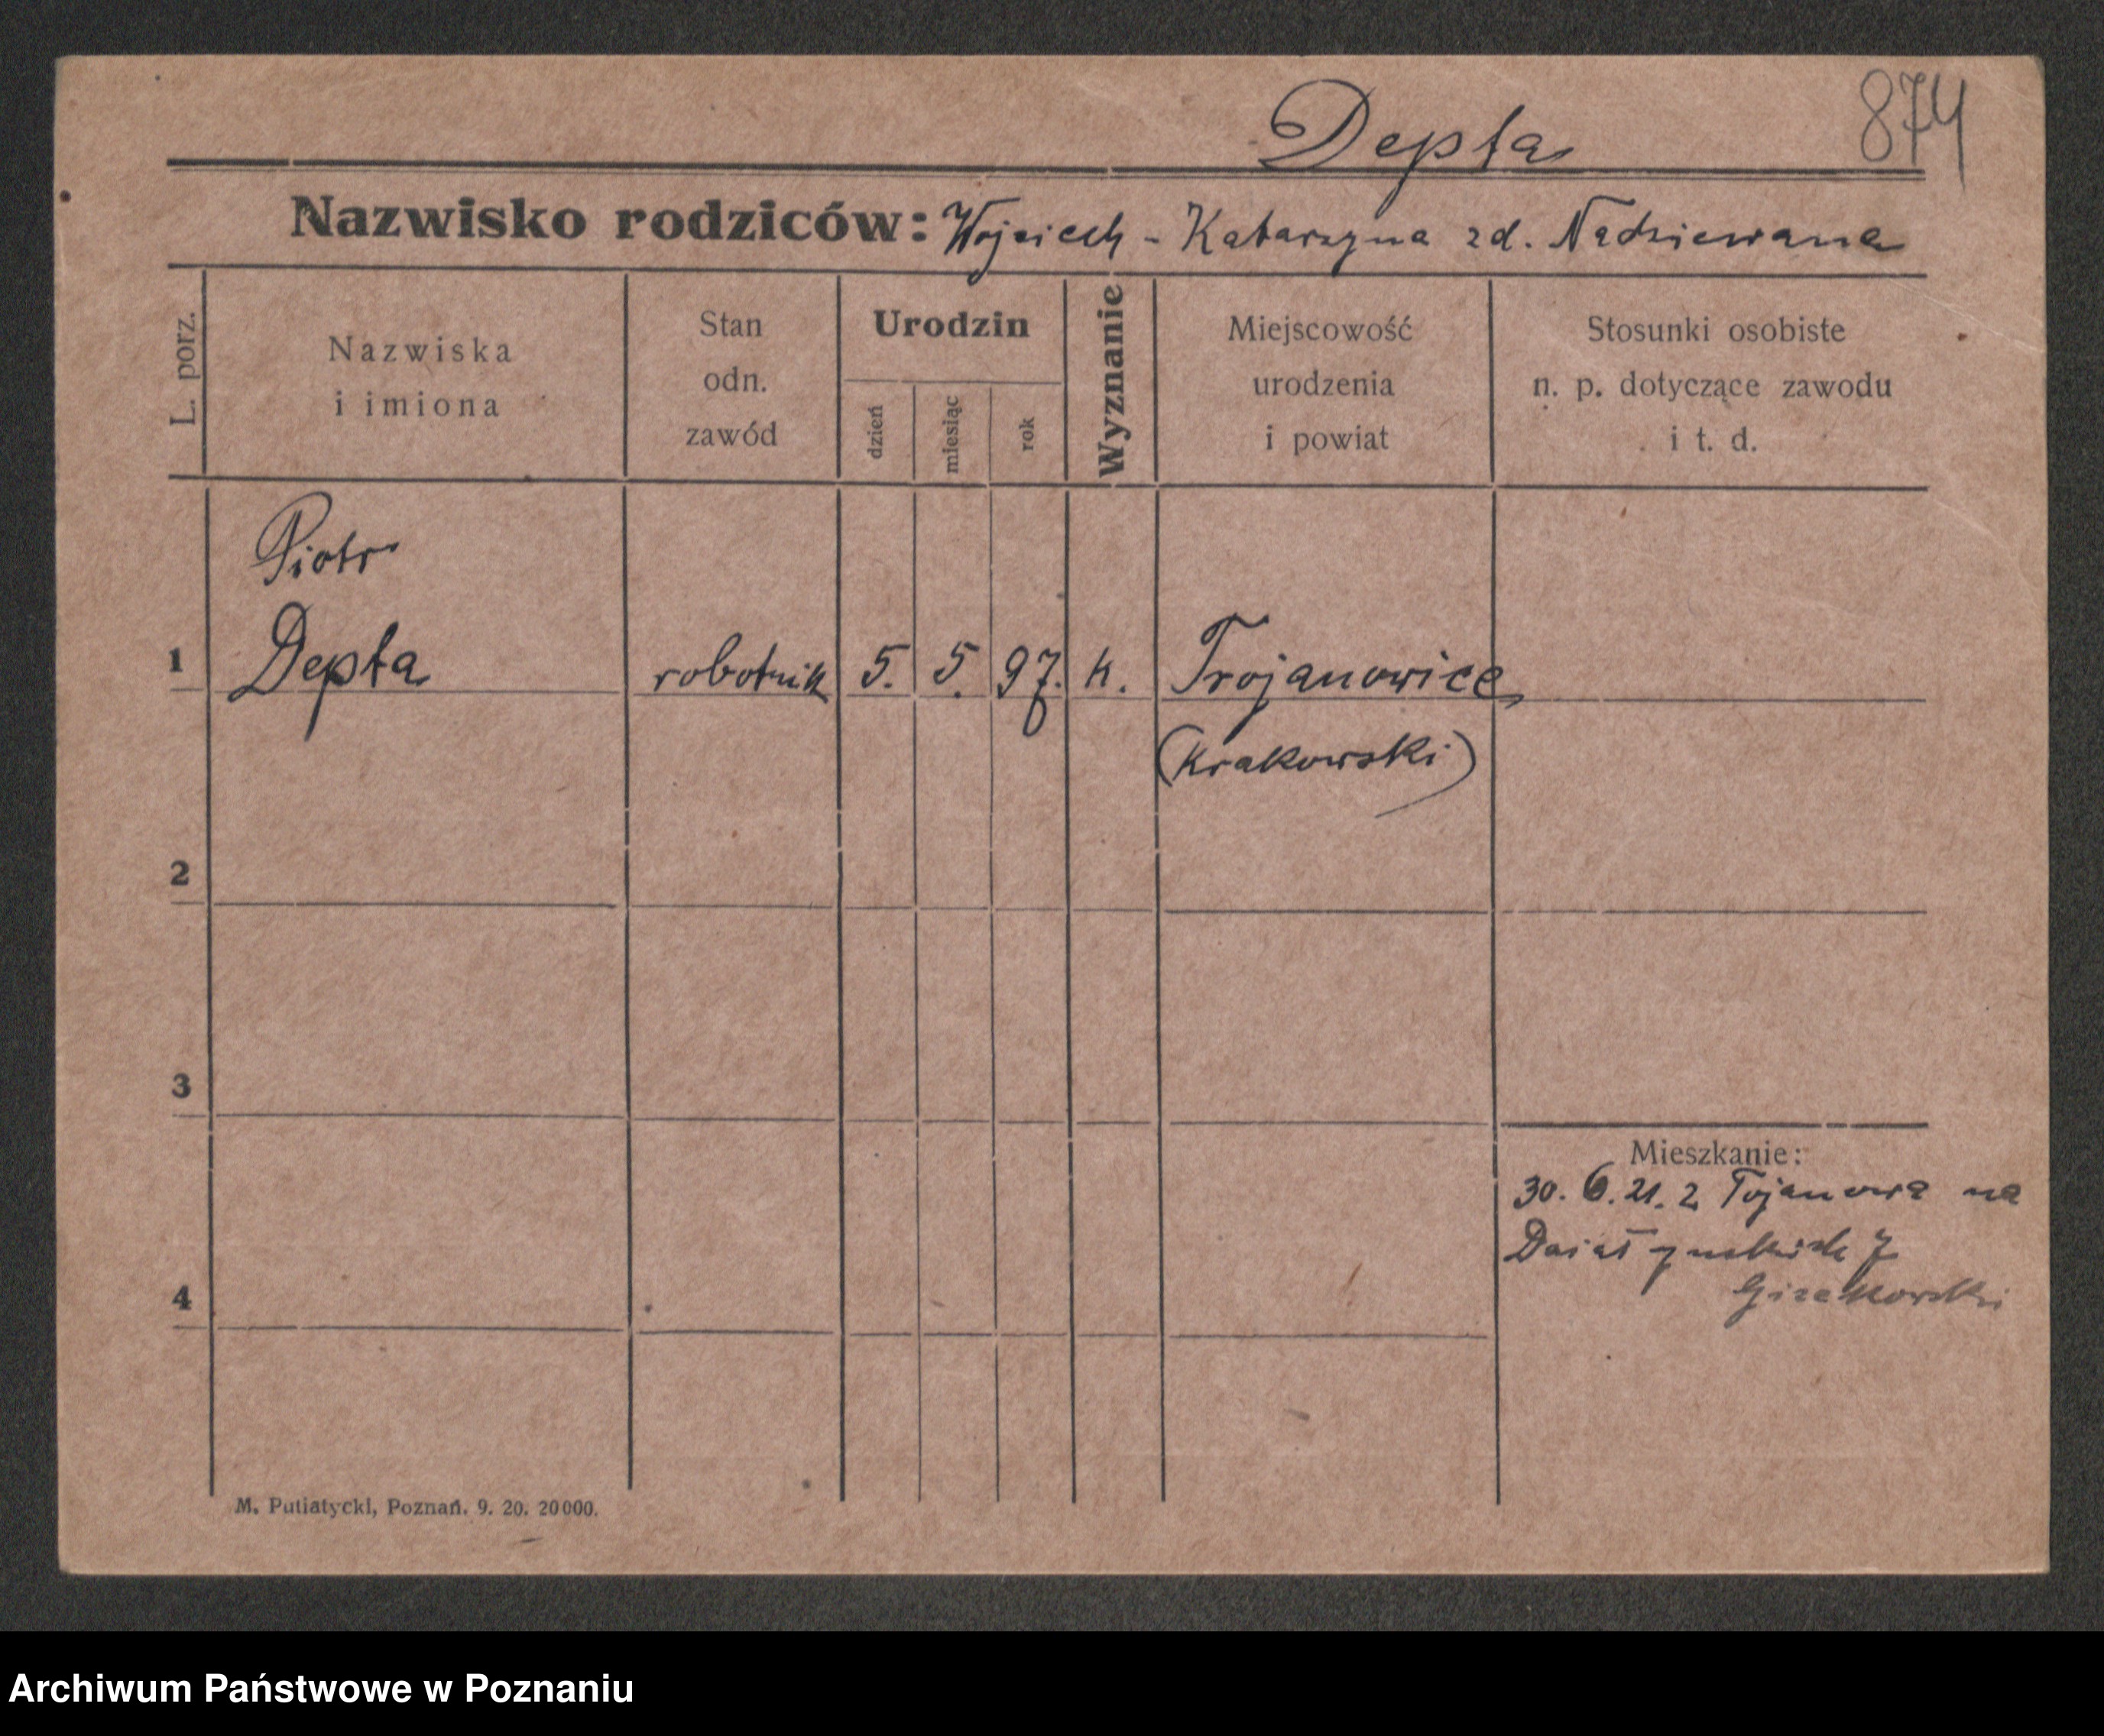 Depta
874
Nazwisko rodziców: Wojciech - Katarzyna zd. Nadziewana
L. porz.
Nazwiska
i imiona
Stan
odn.
zawód
Urodzin
dzień
miesiąc
rok
Wyznanie
Miejscowość
urodzenia
i powiat
Stosunki osobiste
n. p. dotyczące zawodu
i t. d.
Piotr
1 Depta robotnik 5. 5. 97. k. Trojanowice
(Krakowski)
2
3
Mieszkanie:
30. 6. 21. z na
7
4
M. Putiatycki, Poznań. 9. 20. 20000.
Archiwum Państwowe w Poznaniu